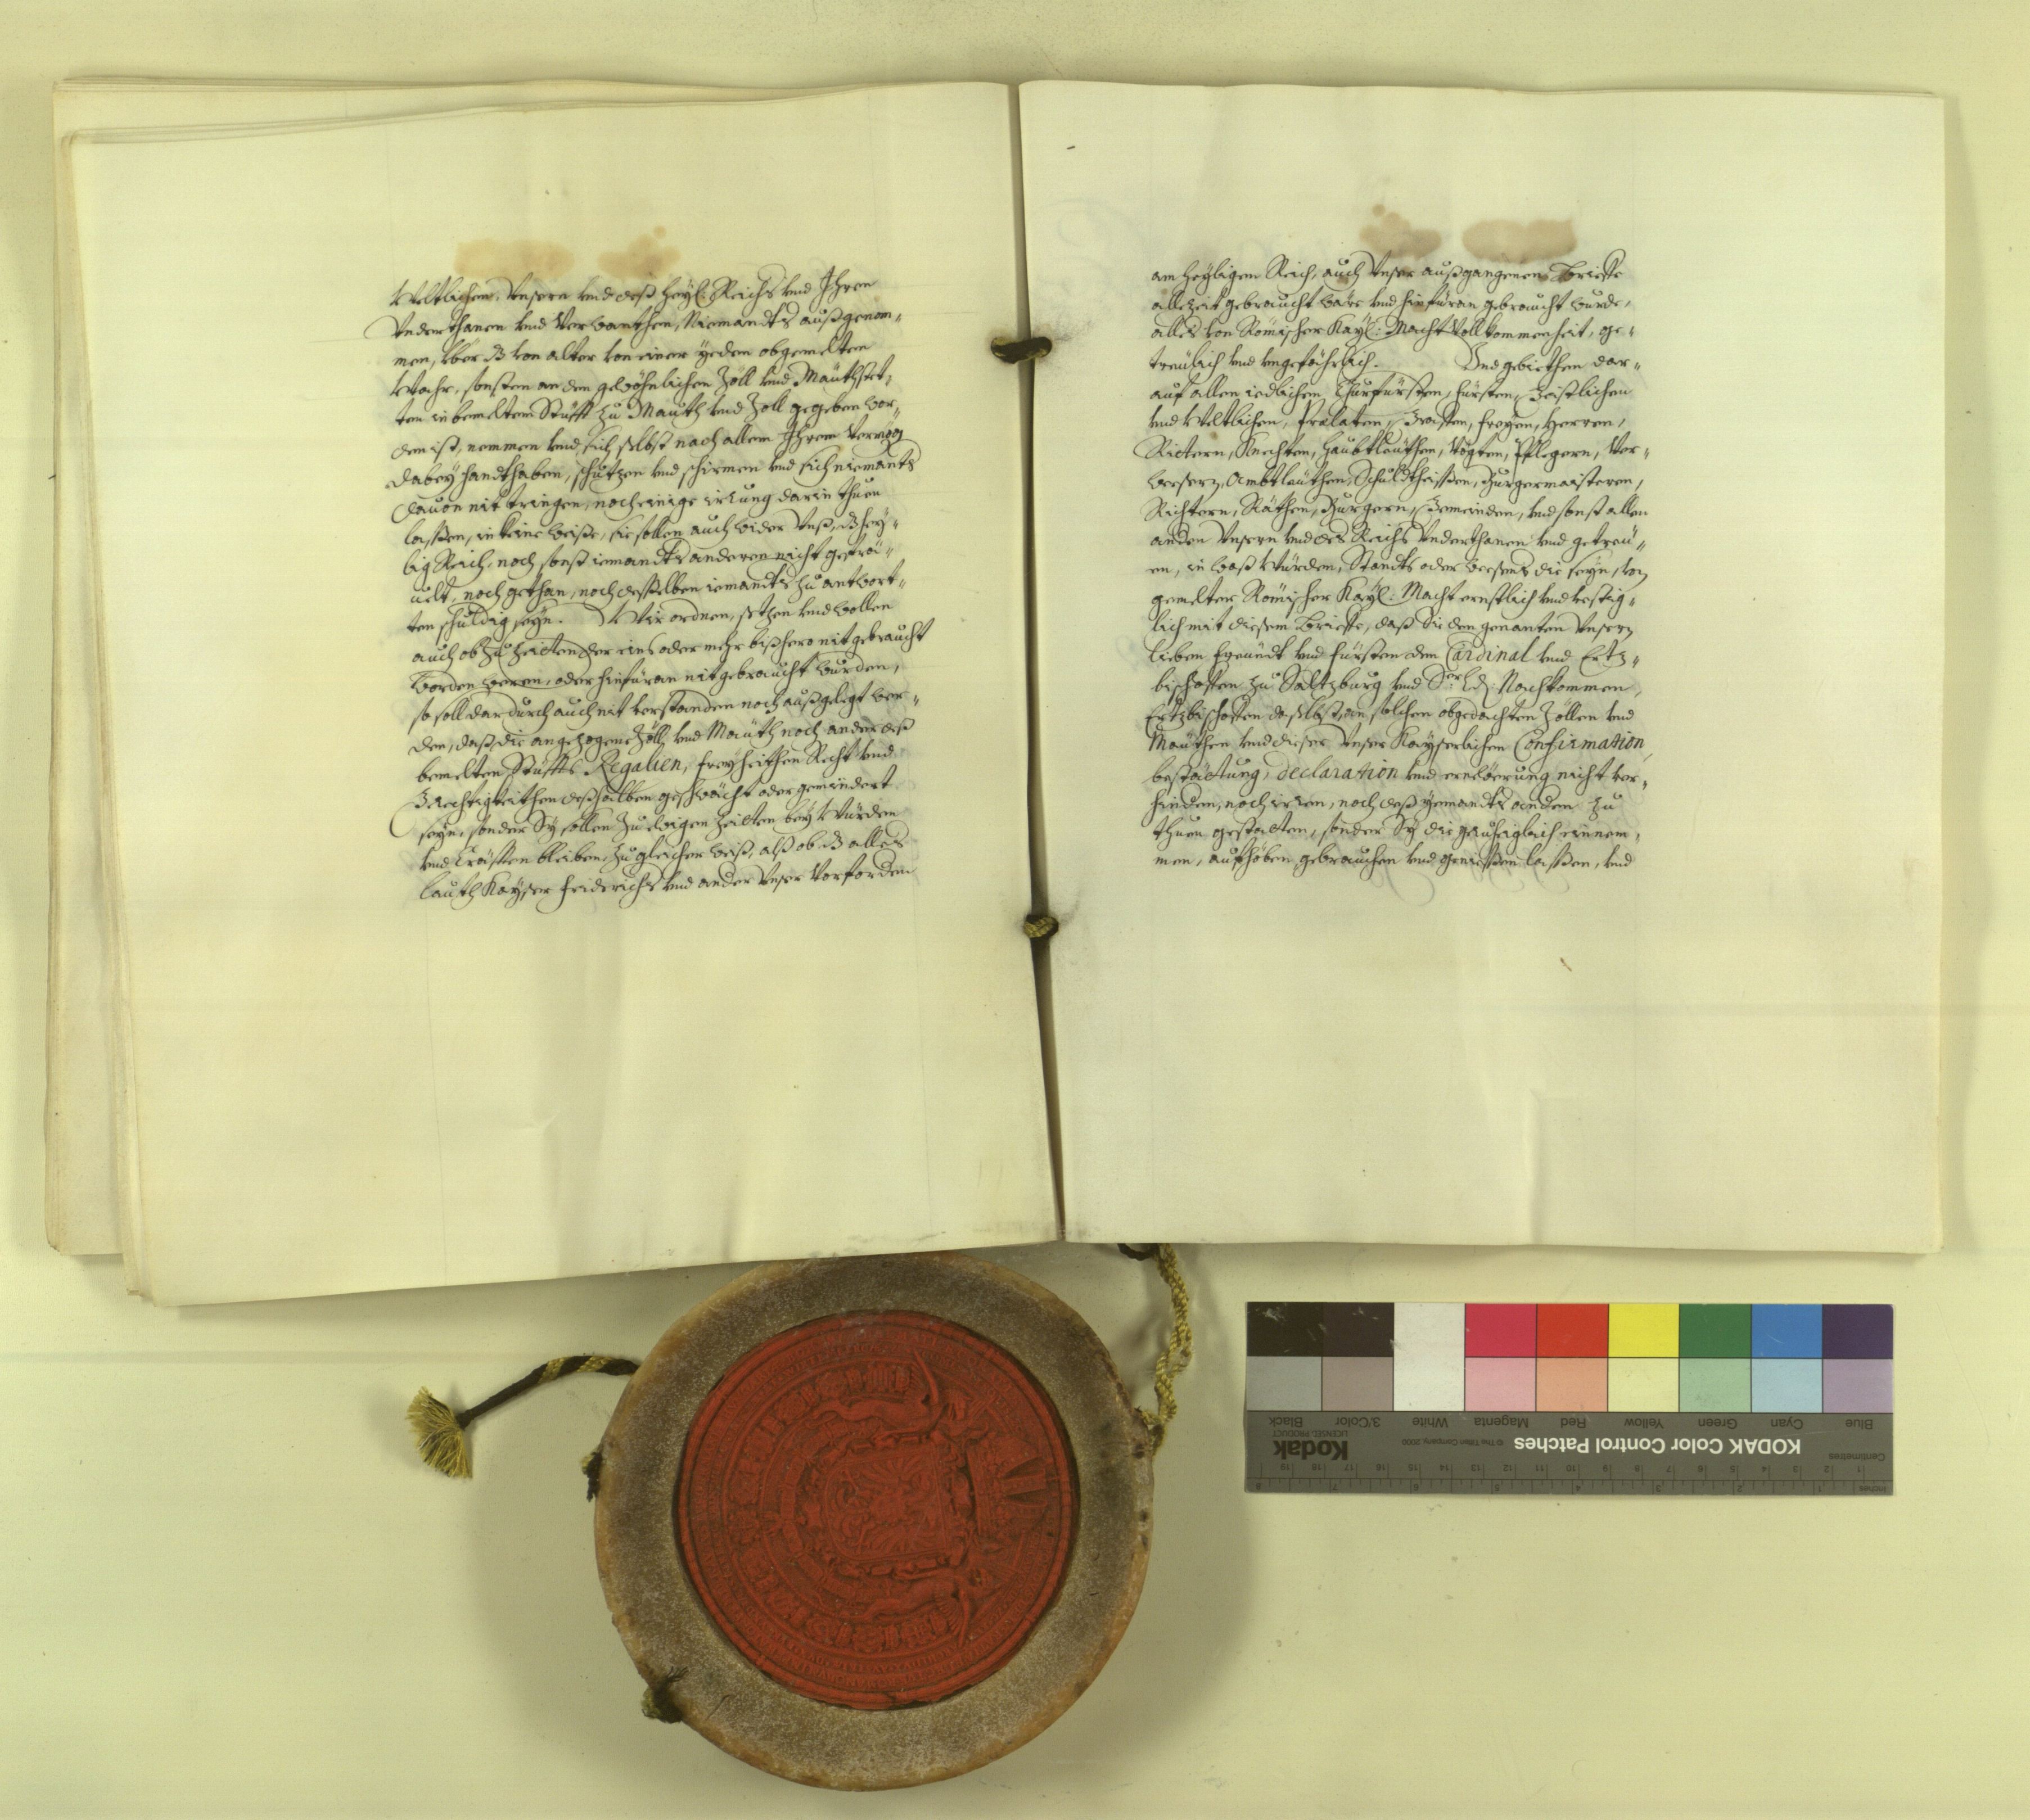 Weltlichen, Unsern vnd deß Heyl: Reichs vnd Ihren
Vnderthanen vnd Verwanthen, Niemandts außgenom-
men, über dz von alter von einer yeden obgemelten
Wahr, sonsten an den gewöhnlichen Zöll vnd Mauthstet-
ten in bemeltem Stüfft zu Mauth vnd Zoll gegeben wor-
den ist, nemmen vnd sich selbst nach allem Ihrem Vermög
dabey handthaben, schützen vnd schirmen vnd sich niemants
dauon nit tringen, noch einige irrung darin thuen
lassen, in keine weiße, sie sollen auch wider Vnß, dz hey-
lig Reich, noch sonst iemandts anderen nicht gefrä-
uelt, noch gethan, noch desselben iemandts zu antwort-
ten schuldig seyn. Wir ordnen, setzen vnd wollen
auch ob zu zeitten der eins oder mehr bißhero nit gebraucht
worden weren, oder hinfüran nit gebraucht wurden,
so soll dardurch auch nit verstanden noch außgelegt wer-
den, daß die angezogene Zöll vnd Mauth noch ander deß
bemelten Stüffts Regalien, freyheithen Recht vnd
Gerechtigkeithen deßhalben geschwächt oder gemindert
seyn, sonder Sy sollen zu ewigen zeitten bey Würden
vnd Kräfften bleiben, zu gleicher weiß, alß ob dz alles
lauth Kayser Friderichs vnd ander Vnser Vorfordern
am heyligen Reich, auch Vnser außgangenen Brieffe
allezeit gebraucht wäre vnd hinfüran gebraucht wurde,
alles von Römischer Kayl: Macht Vollkommenheit, ge-
treulich vnd vngefährlich. Vnd gebiethen dar-
auf allen iedlichen Churfürsten, Fürsten, Geistlichen
vnd Weltlichen, Prälaten, Graffen, Freyen, Herren,
Rittern, Knechten, Haubtleuthen, Vögten, Pflegern, Ver-
wesern, Ambtleuthen, Schuldtheissen, Burgermaisteren,
Richtern, Räthen, Burgern, Gemeinden, vnd sonst allen
andern Vnsern vnd des Reichs Vnderthanen vnd getreu-
en, in waß Würden, Standts oder weesens die seyn, von
gemelter Römischer Kayl: Macht ernstlich vnd vestig-
lich mit diesem Brieffe, daß Sie den genanten Vnsern
lieben freundt vnd Fürsten den Cardinal vnd Ertz-
bischoffen zu Saltzburg vnd Sr. Ld: Nachkommen,
Ertzbischoffen daselbst, an solchen obgedachten Zöllen vnd
Mauthen vnd dieser Vnser Kayserlichen Confirmation,
bestättung, declaration vnd ernewerung nicht ver-
hindern, noch irren, noch deß yemandts andern zu
thuen gestatten, sonder Sy die geruheiglich einnem-
men, aufheben gebrauchen vnd geniessen lassen, vnd
KODAK Color Control Patches
© The Tiffen Company, 2000
Kodak
LICENSED PRODUCT
Blue Cyan Green Yellow Red Magenta White 3/Color Black
Centimetres
Inches